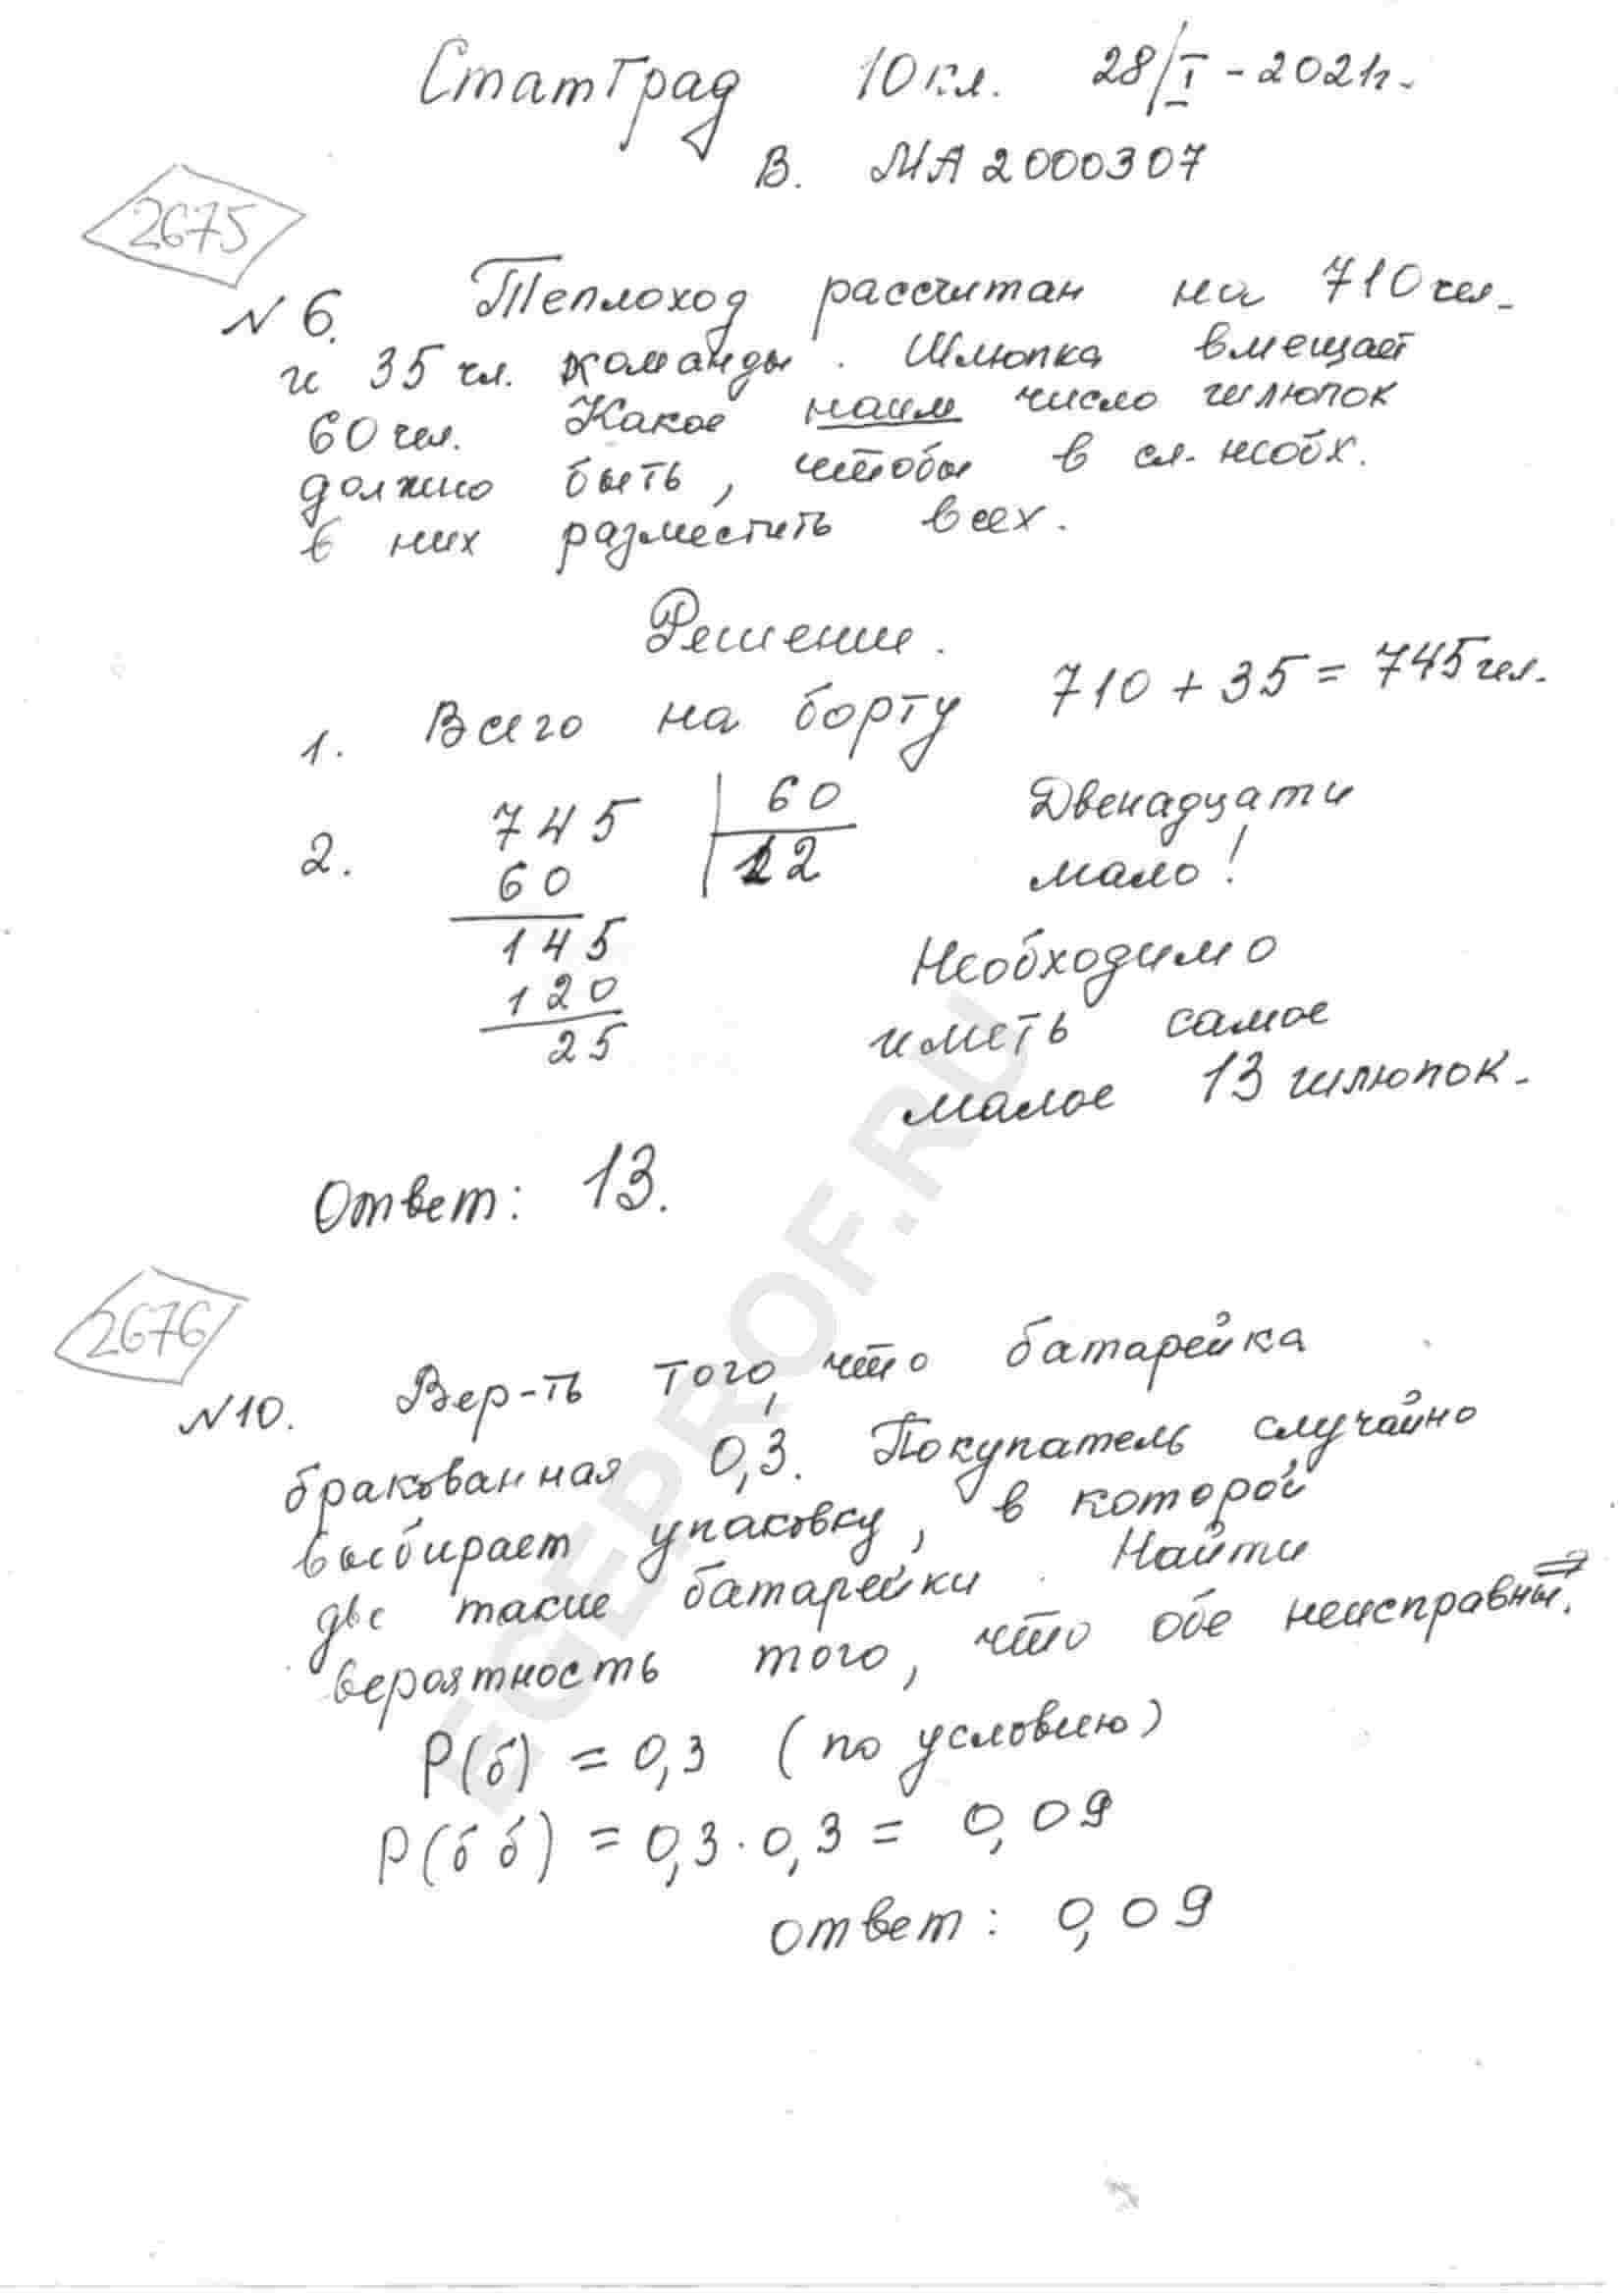 СтатГрад 10 кл. 28/I - 2021г.
В. МА2000307
2675
№ 6. Теплоход рассчитан на 710 чел.
и 35 чл. команды. Шлюпка вмещает
60 чел. Какое наим число шлюпок
должно быть, чтобы в сл. необх.
в них разместить всех.
Решение.
1. Всего на борту 710 + 35 = 745 чел.
2. 745 | 60 Двенадцати
60 12 мало!
145 Необходимо
120 иметь самое
25 малое 13 шлюпок.
Ответ: 13.
2676
№10. Вер-ть того, что батарейка
бракованная 0,3. Покупатель случайно
выбирает упаковку, в которой
две такие батарейки. Найти
вероятность того, что обе неисправны. ⇒
P(б) = 0,3 (по условию)
P(б б) = 0,3 · 0,3 = 0,09
ответ: 0,09
EGEPROF.RU